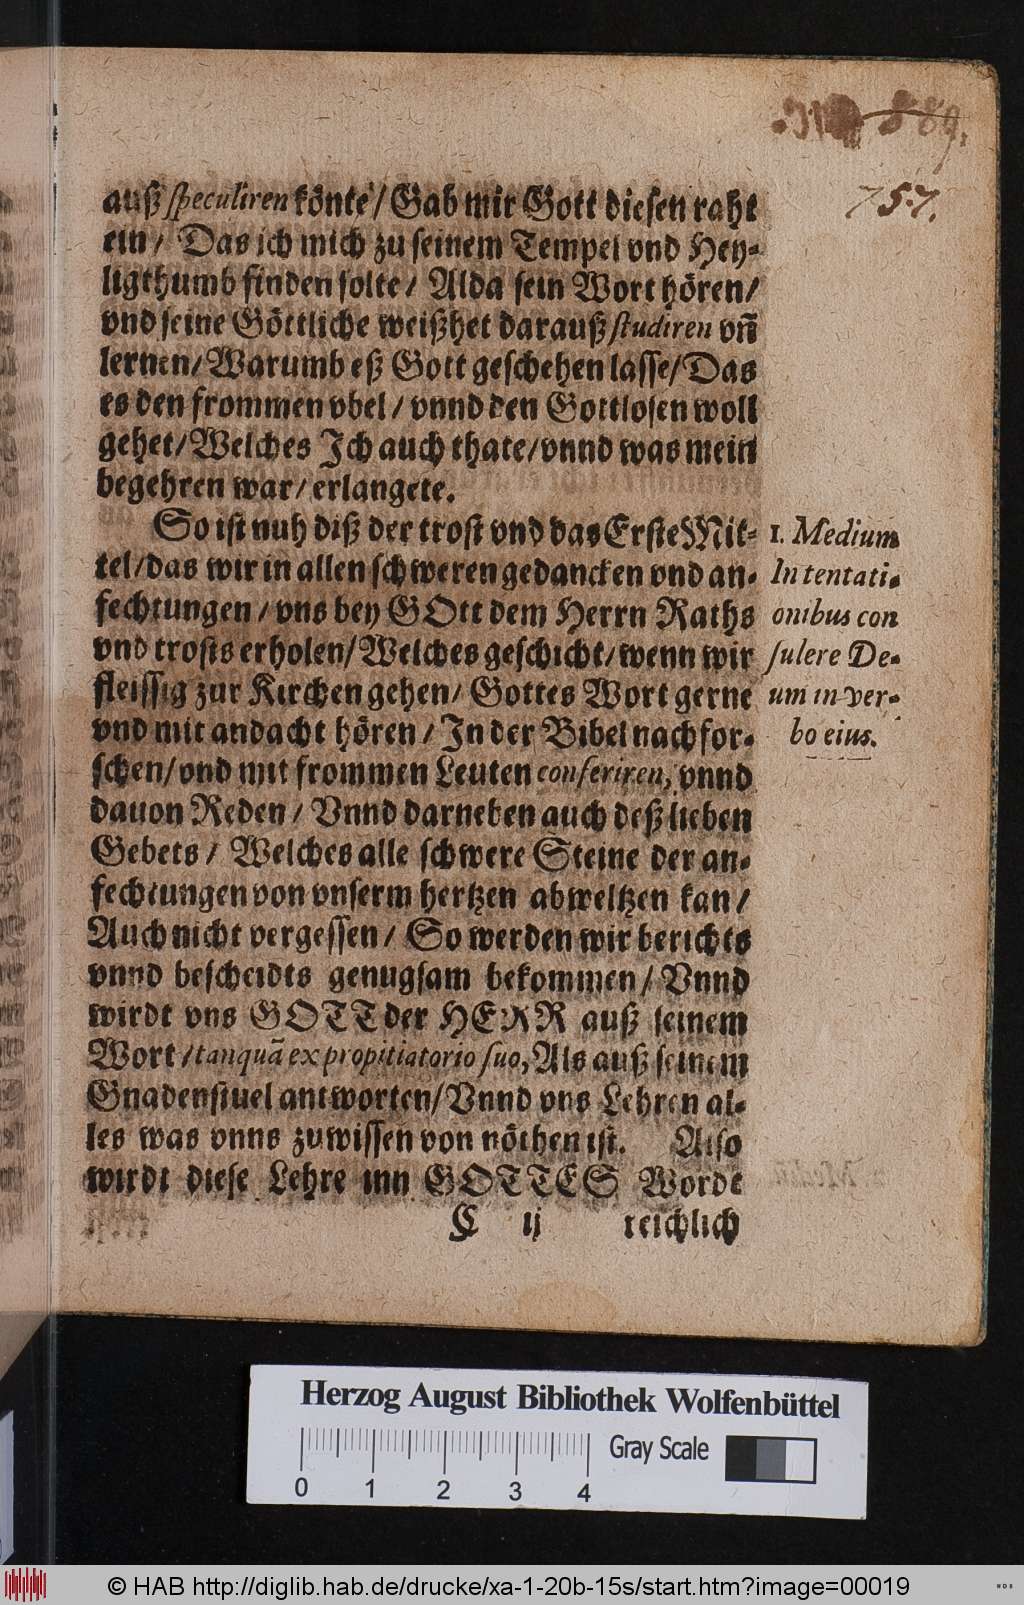 889.
757.
auß speculiren könte / Gab mir Gott diesen raht
ein / Das ich mich zu seinem Tempel vnd Hey-
ligthumb finden solte / Alda sein Wort hören /
vnd seine Göttliche weißhet darauß studiren vn̄
lernen / Warumb eß Gott geschehen lasse / Das
es den frommen vbel / vnnd den Gottlosen woll
gehet / Welches Ich auch thate / vnnd was mein
begehren war / erlangete.
So ist nuh diß der trost vnd das Erste Mit-
tel / das wir in allen schweren gedancken vnd an-
fechtungen / vns bey GOtt dem Herrn Raths
vnd trosts erholen / Welches geschicht / wenn wir
fleissig zur Kirchen gehen / Gottes Wort gerne
vnd mit andacht hören / In der Bibel nachfor-
schen / vnd mit frommen Leuten conferiren, vnnd
dauon Reden / Vnnd darneben auch deß lieben
Gebets / Welches alle schwere Steine der an-
fechtungen von vnserm hertzen abweltzen kan /
Auch nicht vergessen / So werden wir berichts
vnnd bescheidts genugsam bekommen / Vnnd
wirdt vns GOTT der HERR auß seinem
Wort / tanquã ex propitiatorio suo, Als auß seinem
Gnadenstuel antworten / Vnnd vns Lehren al-
les was vnns zuwissen von nöthen ist. Also
wirdt diese Lehre inn GOTTES Wordt
C ij reichlich
1. Medium
In tentati-
onibus con
sulere De-
um in ver-
bo eius.
Herzog August Bibliothek Wolfenbüttel
Gray Scale
0 1 2 3 4
© HAB http://diglib.hab.de/drucke/xa-1-20b-15s/start.htm?image=00019